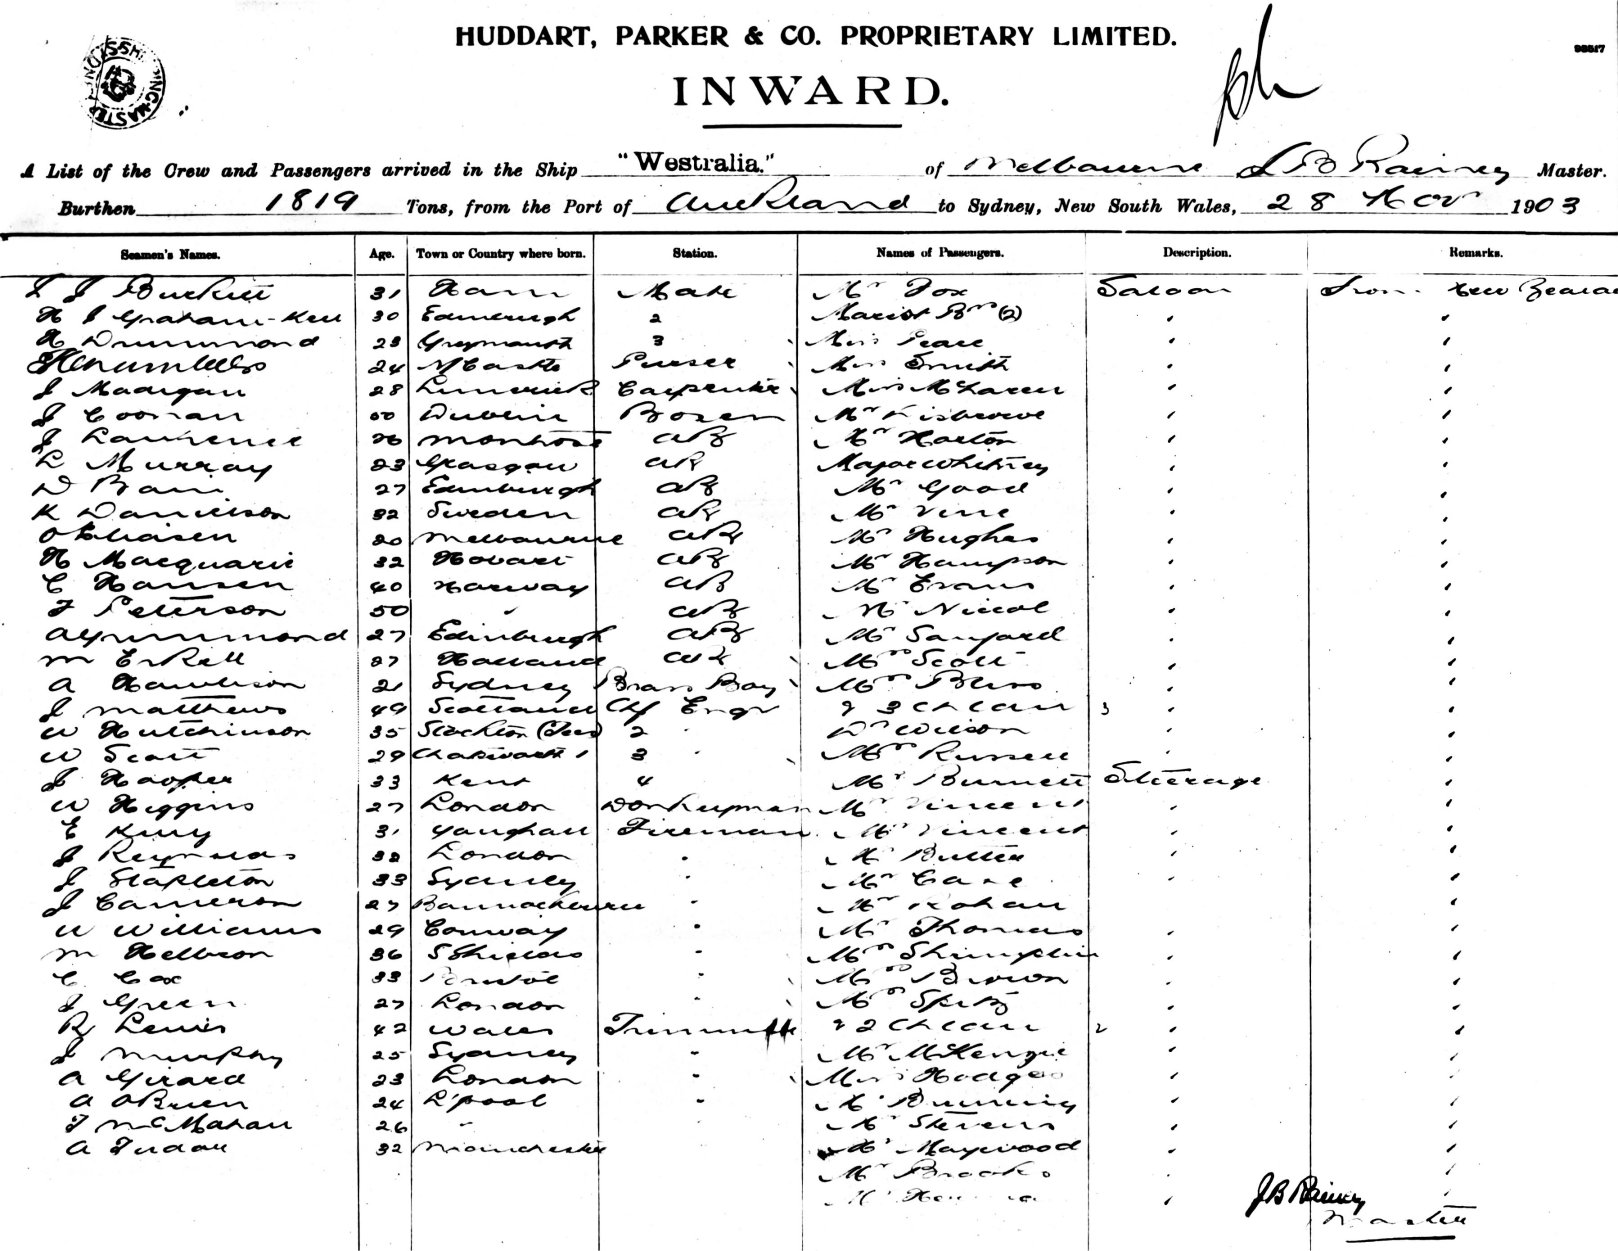 HUDDART, PARKER & CO. PROPRIETARY LIMITED.
98517
INWARD.
A List of the Crew and Passengers arrived in the Ship "Westralia." of Melbourne J B Rainey Master.
Burthen 1819 Tons, from the Port of Auckland to Sydney, New South Wales, 28 Nov 1903
Seamen's Names. Age. Town or Country where born. Station. Names of Passengers. Description. Remarks.
31 Mate Mr Fox Saloon From New Zealand
H J Graham-Kerr 30 Edinburgh 2 (2) "
H Drummond 23 Greymouth 3 " "
24 N'Castle Purser Miss Smith " "
J Madigan 28 Limerick Carpenter Miss McLaren " "
J Coonan 50 Dublin Bosen Mr " "
J Lawrence 26 Montrose AB Mr Horton " "
L Murray 23 Glasgow AB Major Whitney " "
D Bain 27 Edinburgh AB Mr Good " "
K Danielson 32 Sweden AB Mr Vine " "
20 Melbourne AB Mr Hughes " "
H Macquarie 32 Hobart AB Mr Hampson " "
C Hansen 40 Norway AB Mr Evans " "
F Peterson 50 " AB Mr Niccol " "
27 Edinburgh AB Mr Sanford " "
M 37 Holland AB Mrs Scott " "
A 21 Sydney Brass Boy Mrs Bliss " "
J Matthews 49 Scotland Chf Engr & 3 Chldn 3 " "
W Hutchinson 35 Stockton (Tees) 2 " Dr Wilson " "
W Scott 29 3 " Mrs Russell " "
J Hooper 33 Kent 4 Mr Burnett Steerage "
W Higgins 27 London Donkeyman Mr Vincent " "
E King 31 Youghall Fireman Mr Vincent " "
J Reynolds 32 London " Mr " "
J Stapleton 33 Sydney " Mr Case " "
J Cameron 27 Bannockburn " Mr "
W Williams 29 Conway " Mr Thomas " "
M Hellron 36 S Shields " Mrs " "
C Cox 33 Bristol " Mrs Brown " "
J Green 27 London " Mrs Spitz " "
R Lewis 42 Wales Trimmer & 2 Chldn 2 " "
J Murphy 25 Sydney " Mr McKenzie " "
A Girard 23 London " Miss Hodges " "
A OBrien 24 L'pool " " "
F McMahan 26 " Mr Stevens " "
A Tudor 32 Manchester Mr Maywood " "
Mr Brooks " "
" "
J B Rainey
Master